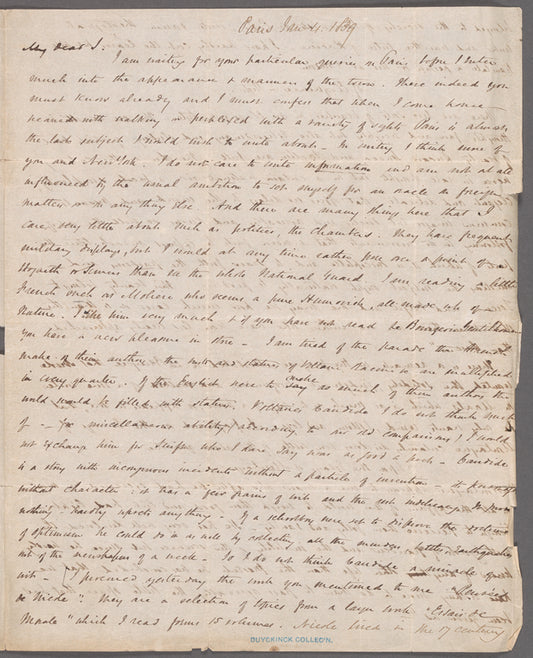 Paris Jan 4. 1839
My dear J.
I am waiting for your particular queries on Paris before I enter
much into the appearance & manners of the town. These indeed you
must know already and I must confess that when I come home
wearied with walking or perplexed with a variety of sights Paris is almost
the last subject I would wish to write about. In writing I think more of
you and New York. I do not care to write information and am not at all
influenced by the usual ambition to set myself for an oracle in foreign
matters or in any thing else. And there are many things here that I
care very little about such as politics, the chambers. They have frequent
military displays, but I would at any time rather pore over a print of
Hogarth or than see the whole National Guard. I am reading a little
French such as Moliere who seems a pure Humorist, all made up of
Nature. I like him very much & if you have not read Le Bourgeois Gentilhomme
you have a new pleasure in store - I am tired of the parade the French
make of their authors. The busts and statues of Voltaire Racine &c are multiplied
in every quarter. If the English were to make as much of their authors the
world would be filled with statues. Voltaires Candide I do not think much
of - for miscellaneous ability (according to an old comparison) I would
not exchange him for Swift who I dare say was as good a - Candide
is a story with incongruous incidents without a particle of invention - it
without character; it has a few grains of wit and the rest indecency. It proves
nothing, hardly upsets anything. If a schoolboy were set to disprove the doctrine
of optimism he could do it as well by collecting all the murders, battles, earthquakes
out of the newspapers of a week. So I do not think Candide a miracle of
wit - I procured yesterday the work you mentioned to me "Pensées
de Nicole". They are a selection of topics from a larger work "Essais de
Morale" which I read forms 15 volumes. Nicole lived in the 17 century
DUYCKINCK COLLEC'N.